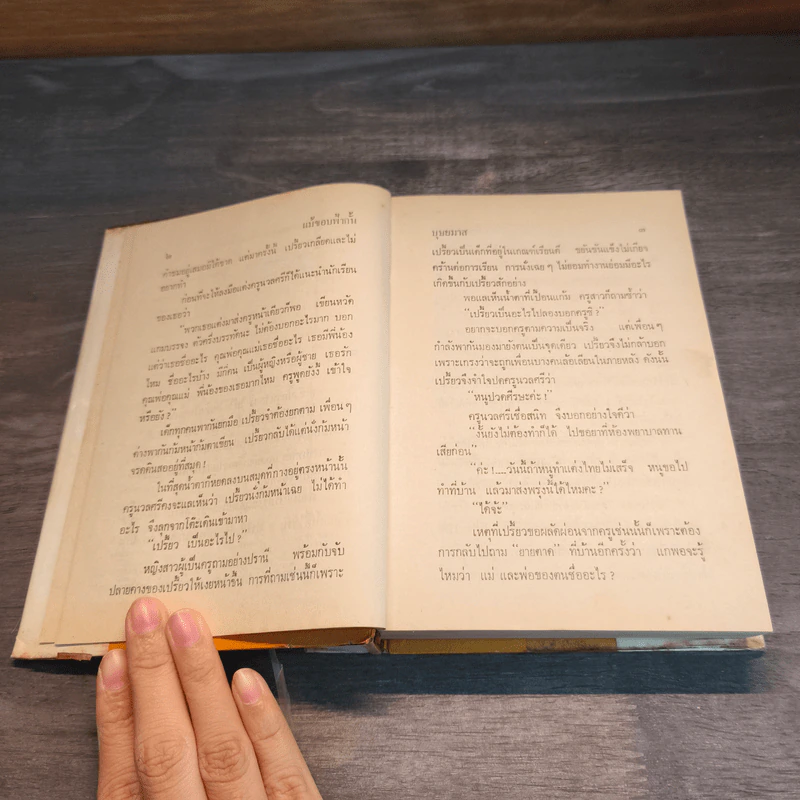 ๒
แม้ขอบฟ้ากั้น
คำชมอยู่เสมอมิได้ขาด แต่มาครั้งนี้ เปรี้ยวเกลียดและไม่
อยากทำ
ก่อนที่จะให้ลงมือแต่งครูนวลศรีก็ได้แนะนำนักเรียน
ของเธอว่า
"พวกเธอแต่งมาส่งครูหน้าเดียวก็พอ เขียนหวัด
แกมบรรจง ตัวครึ่งบรรทัดนะ ไม่ต้องบอกอะไรมาก บอก
แต่ว่าเธอชื่ออะไร คุณพ่อคุณแม่เธอชื่ออะไร เธอมีพี่น้อง
ไหม ชื่ออะไรบ้าง มีกี่คน เป็นผู้หญิงหรือผู้ชาย เธอรัก
คุณพ่อคุณแม่ พี่น้องของเธอมากไหม ครูพูดยังงี้ เข้าใจ
หรือยัง ?"
เด็กทุกคนพากันยกมือ เปรี้ยวจำต้องยกตาม เพื่อน ๆ
ต่างพากันก้มหน้าก้มตาเขียน เปรี้ยวกลับได้แต่นั่งก้มหน้า
จรดดินสออยู่ที่สมุด !
ในที่สุดน้ำตาก็หยดลงบนสมุดที่กางอยู่ตรงหน้านั้น
ครูนวลศรีคงจะแลเห็นว่า เปรี้ยวนั่งก้มหน้าเฉย ไม่ได้ทำ
อะไร จึงลุกจากโต๊ะเดินเข้ามาหา
"เปรี้ยว เป็นอะไรไป ?"
หญิงสาวผู้เป็นครูถามอย่างปรานี พร้อมกับจับ
ปลายคางของเปรี้ยวให้เงยหน้าขึ้น การที่ถามเช่นนี้ก็เพราะ
บุษยมาส
๓
เปรี้ยวเป็นเด็กที่อยู่ในเกณฑ์เรียนดี ขยันขันแข็งไม่เกียจ
คร้านต่อการเรียน การนั่งเฉย ๆ ไม่ยอมทำงานย่อมมีอะไร
เกิดขึ้นกับเปรี้ยวสักอย่าง
พอแลเห็นน้ำตาที่เปื้อนแก้ม ครูสาวก็ถามซ้ำว่า
"เปรี้ยวเป็นอะไรไปลองบอกครูซิ ?"
อยากจะบอกครูตามความเป็นจริง แต่เพื่อน ๆ
กำลังพากันมองมายังตนเป็นจุดเดียว เปรี้ยวจึงไม่กล้าบอก
เพราะเกรงว่าจะถูกเพื่อนบางคนล้อเลียนในภายหลัง ดังนั้น
เปรี้ยวจึงจำใจปดครูนวลศรีว่า
"หนูปวดศีรษะค่ะ !"
ครูนวลศรีเชื่อสนิท จึงบอกอย่างใจดีว่า
"งั้นยังไม่ต้องทำก็ได้ ไปขอยาที่ห้องพยาบาลทาน
เสียก่อน"
"ค่ะ !.....วันนี้ถ้าหนูทำแต่งไทยไม่เสร็จ หนูขอไป
ทำที่บ้าน แล้วมาส่งพรุ่งนี้ได้ไหมคะ ?"
"ได้จ้ะ"
เหตุที่เปรี้ยวขอผลัดผ่อนจากครูเช่นนั้นก็เพราะต้อง
การกลับไปถาม "ยายตาด" ที่บ้านอีกครั้งว่า แกพอจะรู้
ไหมว่า แม่ และพ่อของตนชื่ออะไร ?